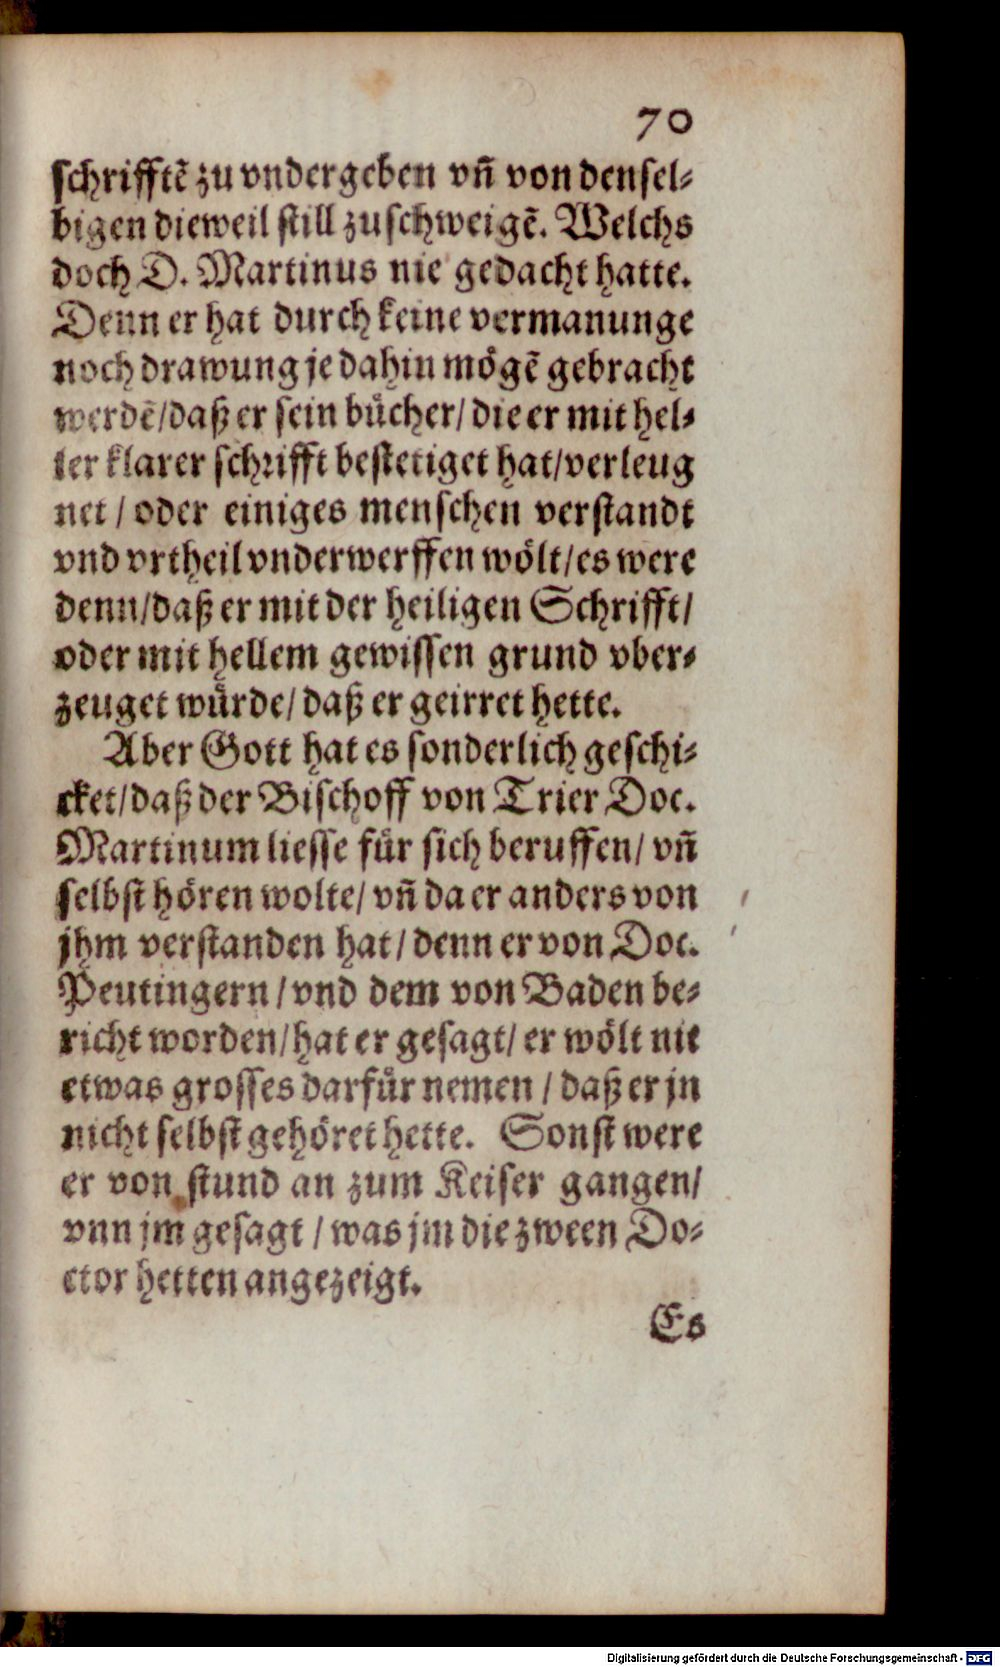 70
schrifftẽ zu vndergeben vñ von densel-
bigen dieweil still zuschweigẽ. Welchs
doch D. Martinus nie gedacht hatte.
Denn er hat durch keine vermanunge
noch drawung je dahin mögẽ gebracht
werdẽ/daß er sein bücher/ die er mit hel-
ler klarer schrifft bestetiget hat/verleug
net / oder einiges menschen verstandt
vnd vrtheil vnderwerffen wölt/es were
denn/daß er mit der heiligen Schrifft/
oder mit hellem gewissen grund vber-
zeuget würde/ daß er geirret hette.
Aber Gott hat es sonderlich geschi-
cket/daß der Bischoff von Trier Doc.
Martinum liesse für sich beruffen/ vñ
selbst hören wolte/ vñ da er anders von
jhm verstanden hat/ denn er von Doc.
Peutingern / vnd dem von Baden be-
richt worden/hat er gesagt/ er wölt nit
etwas grosses darfür nemen / daß er jn
nicht selbst gehöret hette. Sonst were
er von stund an zum Keiser gangen/
vnn jm gesagt / was jm die zween Do-
ctor hetten angezeigt.
Es
Digitalisierung gefördert durch die Deutsche Forschungsgemeinschaft - DFG